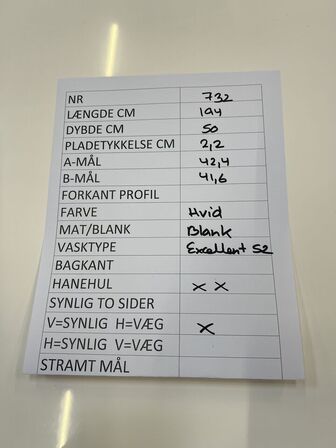 NR 732
LÆNGDE CM 194
DYBDE CM 50
PLADETYKKELSE CM 2,2
A-MÅL 42,4
B-MÅL 41,6
FORKANT PROFIL
FARVE Hvid
MAT/BLANK Blank
VASKTYPE Excellent 52
BAGKANT
HANEHUL x x
SYNLIG TO SIDER
V=SYNLIG H=VÆG x
H=SYNLIG V=VÆG
STRAMT MÅL